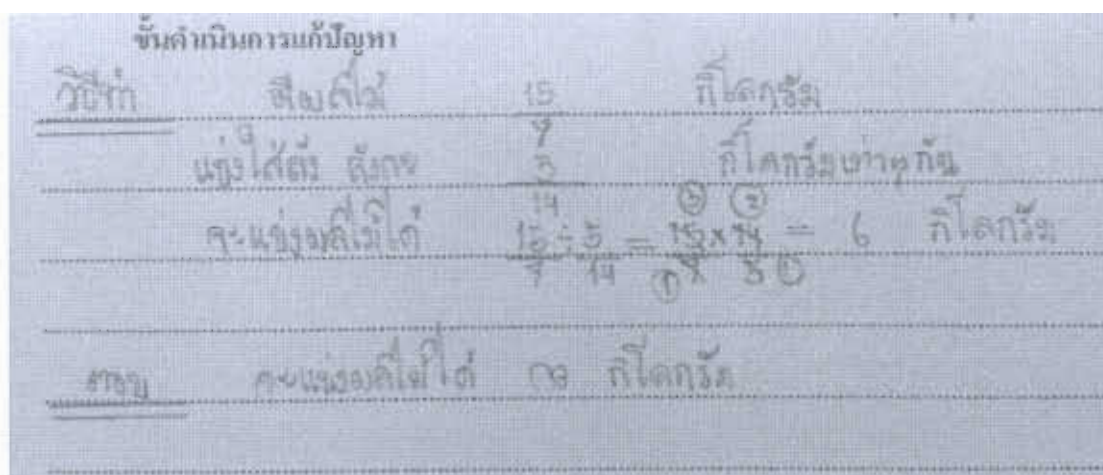 ขั้นดำเนินการแก้ปัญหา
วิธีทำ มีผลไม้ 15/7 กิโลกรัม
แบ่งใส่ถุง ถุงละ 5/14 กิโลกรัมเท่าๆกัน
จะแบ่งผลไม้ได้ 15/7 ÷ 5/14 = 15/7 × 14/5 = 6 กิโลกรัม
ตอบ จะแบ่งผลไม้ได้ ๖ กิโลกรัม